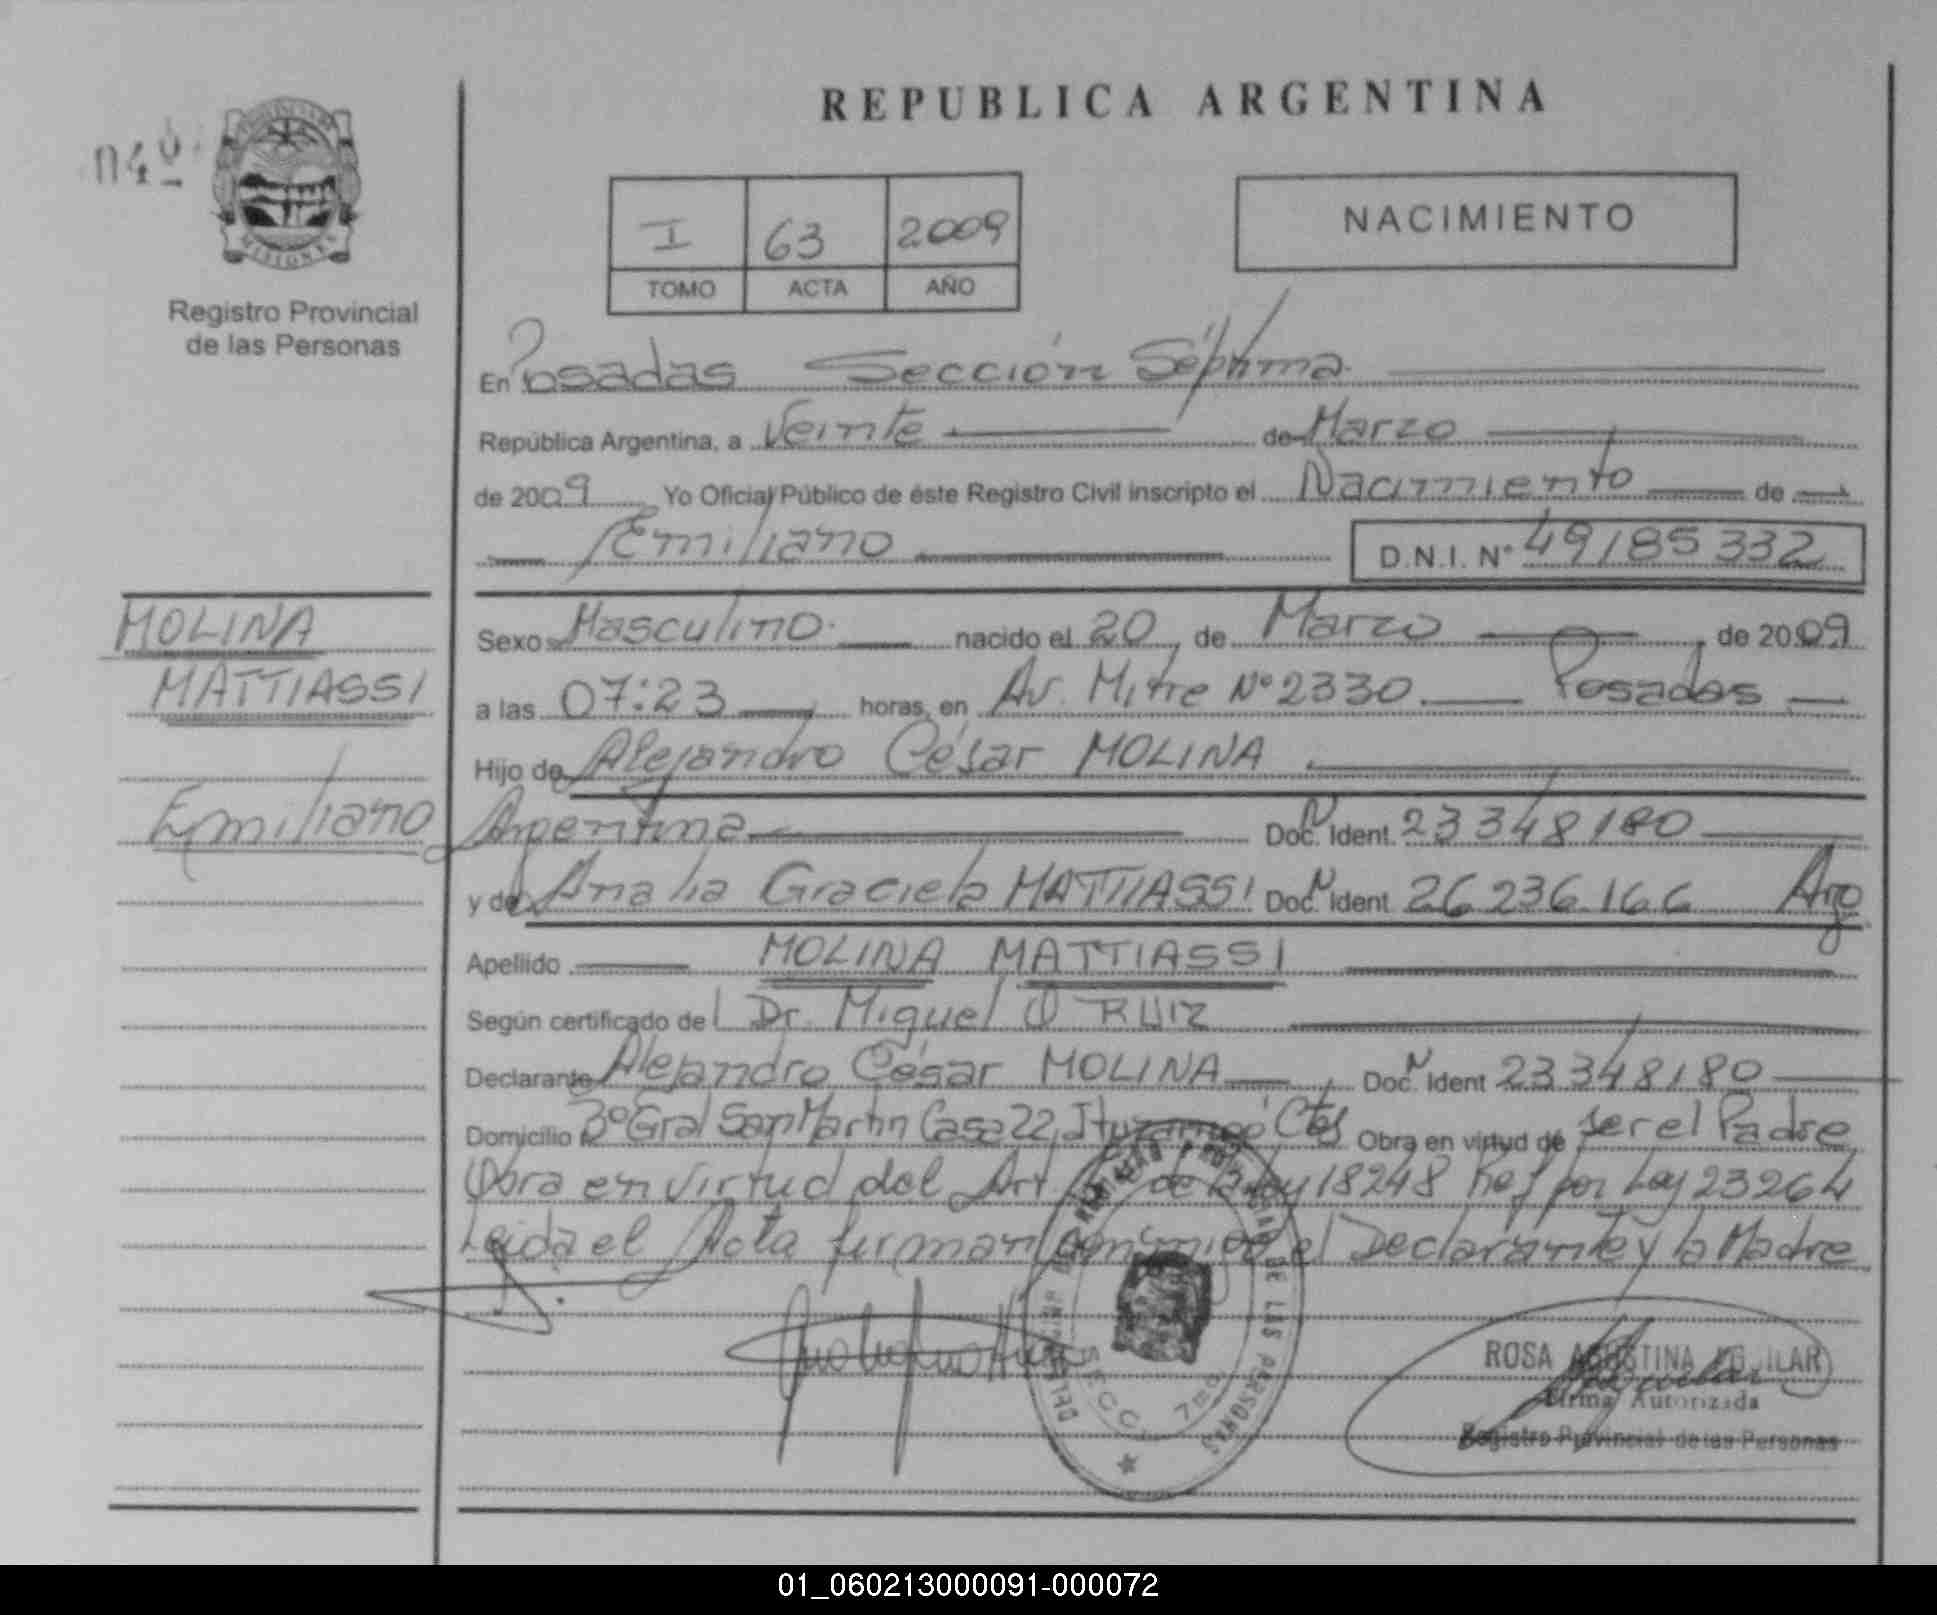 REPUBLICA ARGENTINA
MISIONES
Registro Provincial
de las Personas
I 63 2009
TOMO ACTA AÑO
NACIMIENTO
En Posadas Sección Séptima
República Argentina, a Veinte de Marzo
de 2009 Yo Oficial Público de éste Registro Civil inscripto el Nacimiento de
Emiliano D.N.I. N° 49185332
MOLINA
MATTIASSI
Emiliano
Sexo Masculino nacido el 20 de Marzo de 2009
a las 07:23 horas, en Av. Mitre N° 2330 Posadas
Hijo de Alejandro César MOLINA
Argentina Doc. Ident. 23348180
y de Analia Graciela MATTIASSI Doc. Ident 26236166 Arg
Apellido MOLINA MATTIASSI
Según certificado del Dr. Miguel O RUIZ
Declarante Alejandro César MOLINA Doc. Ident 23348180
Domicilio B° Gral San Martin Casa 22, Ituzaingó Ctes Obra en virtud de ser el Padre
Obra en virtud del Art. de la Ley 18248 Ref por Ley 23264
Leida el Acta firman conmigo el Declarante y la Madre
DE LAS PERSONAS
SECC. 7ma
ROSA AGUSTINA AGUILAR
Firma Autorizada
Registro Provincial de las Personas
01_060213000091-000072